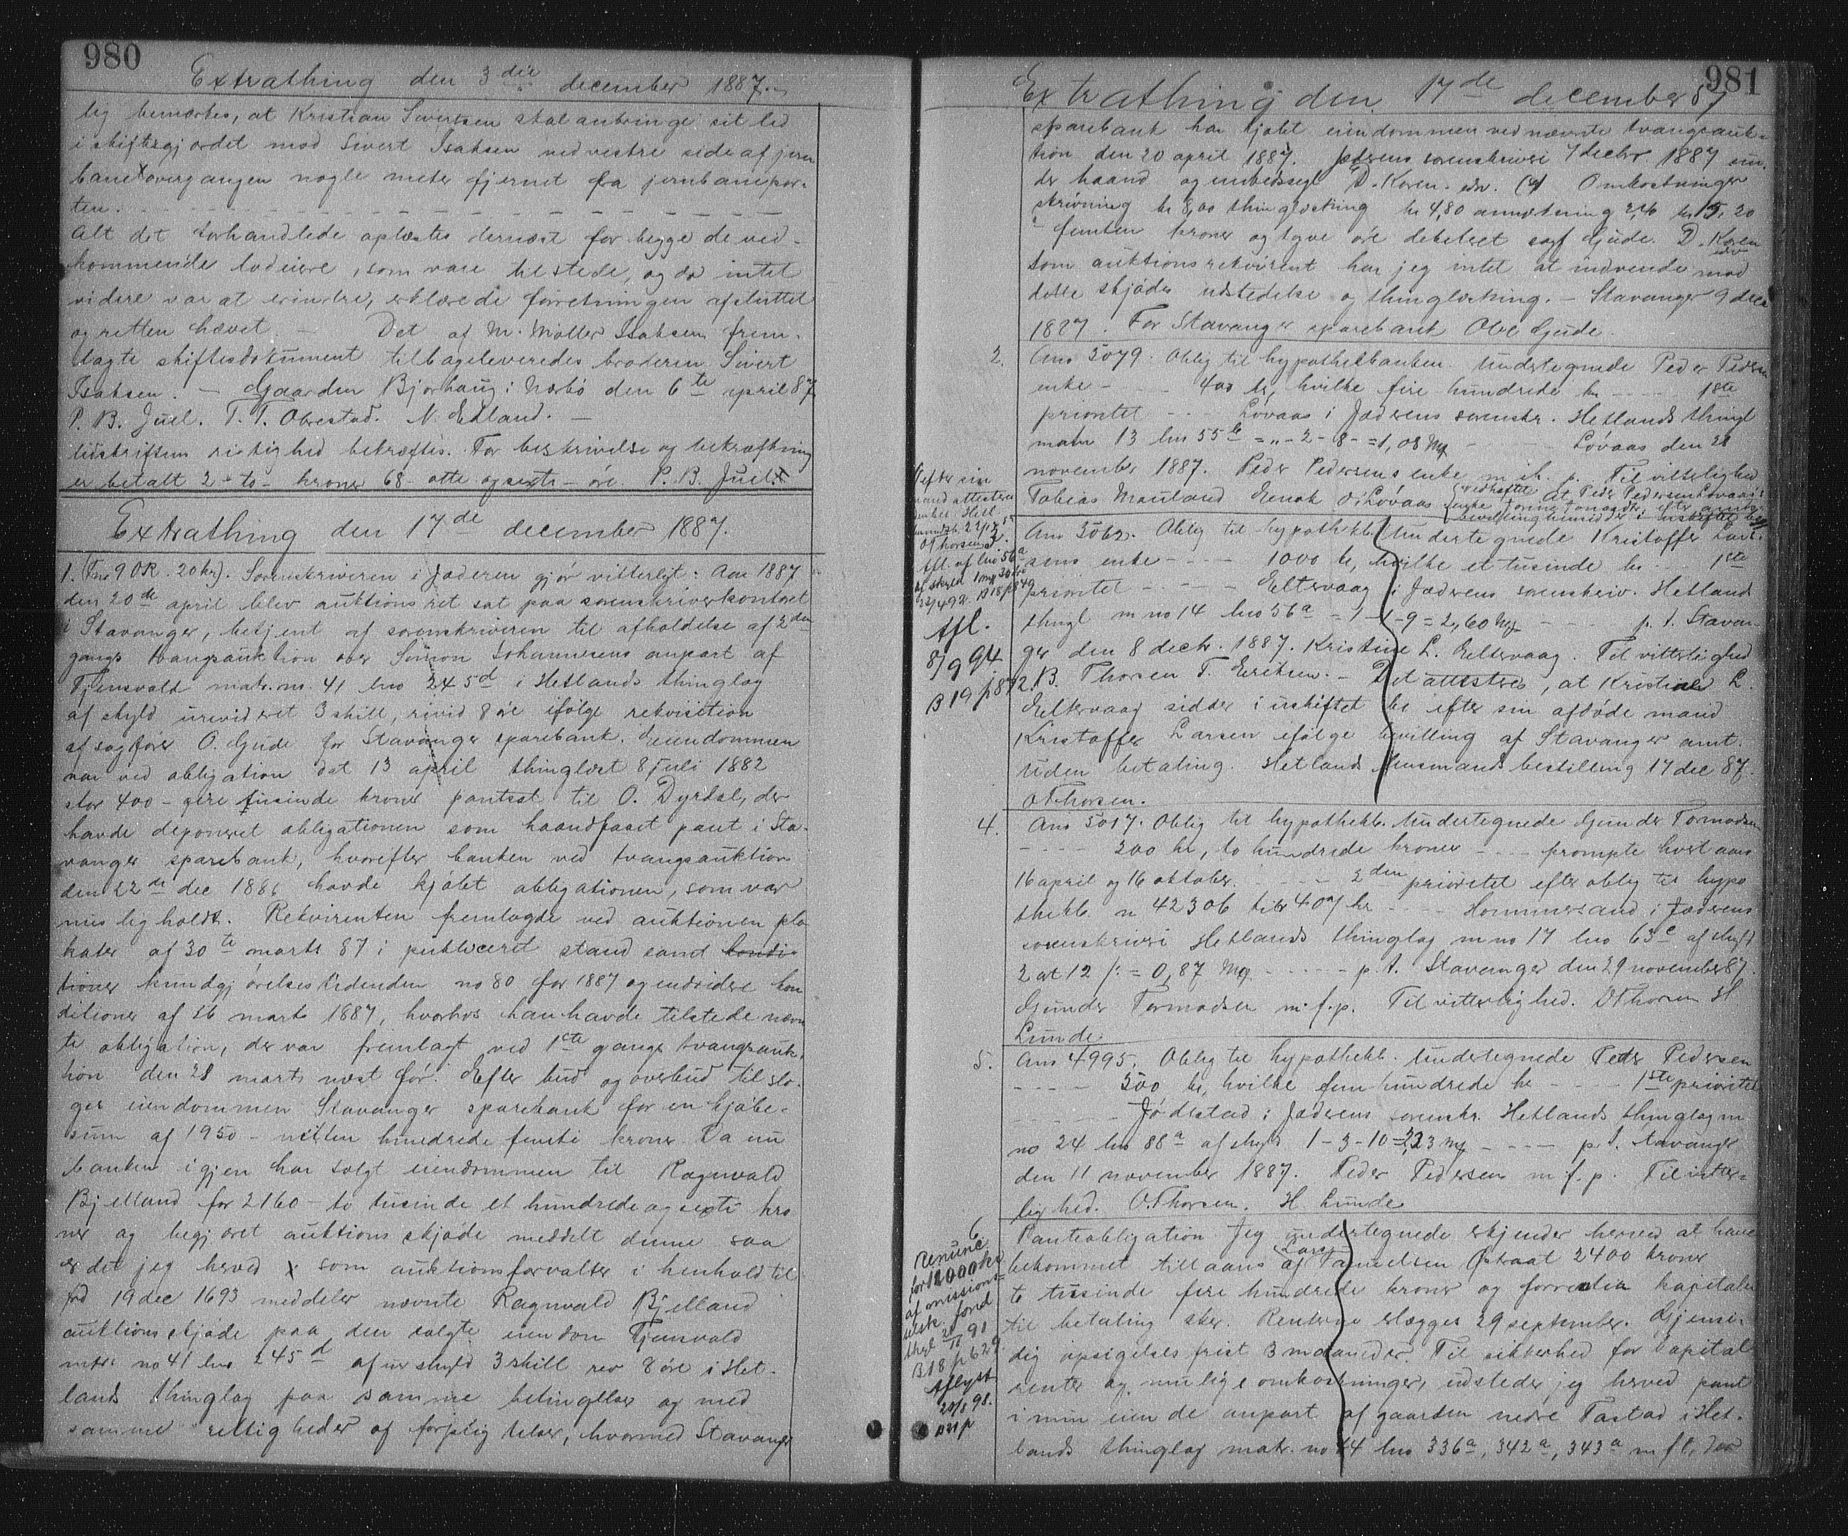 980
Extrathing den 3die december 1887.
lig bemærkes, at Kristian Sivertsen skal anbringe sit led
i skiftesgjærdet mod Sivert Isaksen ved vestre side af jern
baneovergangen nogle meter fjernet fra jernbanepor-
ten.
Alt det forhandlede oplæstes dernæst for begge de ved-
kommende lodeiere, som vare tilstede, og da intet
videre var at erindre, erklærede forretningen afsluttet
og retten hævet. – Det af M. Møller Isaksen frem-
lagte skiftesdokument tilbageleveredes broderen Sivert
Isaksen. – Gaarden Bjorhaug i Nærbø den 6te april 87
P. B. Juel. T. T. Obrestad. N. Edland. –
Udskriftens rigtighed bekræftes. For beskrivelse og bekræftning
er betalt 2 – to – kroner 68 – otte og sexti – øre. P. B. Juel.
Extrathing den 17de december 1887.
1. Sorenskriveren i Jæderen gjør vitterligt: Aar 1887
den 20de april blev auktionsret sat paa sorenskriverkontoret
i Stavanger, betjent af sorenskriveren til afholdelse af 2den
gangs tvangsauktion over Simon Johannesens anpart af
Tjensvold matr. no. 41 lno 245d i Hetlands thinglag
af skyld urevideret 3 skill, revid 8 øre ifølge rekvisition
af sagfører O. Gude for Stavanger sparebank. Eiendommen
var ved obligation dat 13 april thinglæst 8 juli 1882
stor 400 – fire tusinde kroner pantsat til O. Dyrdal, der
havde deponeret obligationen som haandfaaet pant i Sta-
vanger sparebank, hvorefter banken ved tvangsauktion
den 22de dec 1886 havde kjøbt obligationen, som var
misligholdt. Rekvirenten fremlagde ved auktionen pla
kater af 30te marts 87 i publiceret stand samt kondi-
tioner kundgjørelsestidenden no 80 for 1887 og endvidere kon
ditioner af 26 marts 1887, hvorhos han havde tilstede nævn
te obligation, der var fremlagt ved 1ste gangs tvangsauk-
tion den 28 marts næst før. Efter bud og overbud tilslo-
ges eiendommen Stavanger sparebank for en kjøbe-
sum af 1950 – nitten hundrede femti kroner. Da nu
banken igjen har solgt eiendommen til Ragnvald
Bjelland for 2160 – to tusinde et hundrede og sexti kro
ner og begjæret auktionsskjøde meddelt denne saa
er det jeg herved x som auktionsforvalter i henhold til
frd 19 dec 1693 meddeler nævnte Ragnvald Bjelland
auktionsskjøde paa den solgte eiendom Tjensvold
matr no 41 lno 245d af urskyld 3 skill rev 8 øre i Het-
lands thinglag paa samme betingelser og med
samme rettigheder og forpligtelser, hvormed Stavanger
981
Extrathing den 17de december 87
sparebank har kjøbt eiendommen ved nævnte tvangsauk-
tion den 20 april 1887. Jæderens sorenskriveri 7 decbr 1887 un-
der haand og embedssegl D. Koren. Omkostninger
skrivning kr 8,00 thinglæsning kr 4,80 anmærkning 2,40 kr 15,20
femten kroner og tyve øre debiteret sagf Gude. D. Koren
Som auktionsrekvirent har jeg intet at indvende mod
dette skjødes udstedelse og thinglæsning. – Stavanger 9 decbr
1887. For Stavanger sparebank Ole Gude.
2. Ans 5079. Oblig til hypothekbanken. Undertegnede Peder Pedersens
enke – – 400 kr, hvilke fire hundrede kr – – 1ste
prioritet – – Løvaas i Jæderens sorenskr. Hetlands thingl
matr 13 lno 55b = „ – 2 – 8 – = 1,08 Mk – – Løvaas den 28
november 1887. Peder Pedersens enke m. p. Til vitterlighed
Tobias Mauland Enok O. Løvaas
Ans 5062. Oblig til hypothekb. Undertegnede Kristoffer Lar-
sens enke – – 1000 kr, hvilke et tusinde kr – – 1ste
prioritet – – Eltervaag i Jæderens sorenskriv. Hetland
thingl m no 14 lno 56a = 1 – 1 – 9 = 2,60 Mk – – p. t. Stavan-
ger den 8 decbr. 1887. Kristine L. Eltervaag. Til vitterlighed
B. Thorsen T. Eriksen. – Det attesteres, at Kristine L.
Eltervaag sidder i uskiftet bo efter sin afdøde mand
Kristoffer Larsen ifølge bevilling af Stavanger amt.
Uden betaling. Hetland lensmandsbestilling 17 dec 87.
O Thorsen.
efter sin
mand attesteres
O Thorsen
Afl.
8/9 94.
B 19 p 872.
4. Ans 5017. Oblig til hypothekb. Undertegnede Gunder Tormodsen
– – 200 kr, to hundrede kroner – – prompte hvert aars
16 april og 16 oktober. – – 2den prioritet efter oblig til hypo
thekb. n 42306 litr 407 kr – – Hommersand i Jæderens
sorenskriveri Hetlands thinglag m no 17 lno 63c af skyld
2 at 12 /: = 0,87 Mk – – p. t. Stavanger den 29 november 87.
Gunder Tormodsen m. f. p. Til vitterlighed. O Thorsen H.
Lunde
5. Ans 4995. Oblig til hypothekb. Undertegnede Peder Pedersen
– – 500 kr, hvilke fem hundrede kr – – 1ste prioritet
– – Jødestad i Jæderens sorenskr. Hetlands thinglag m
no 24 lno 88a af skyld 1 – 3 – 10 = 3,23 Mk – – p. t. Stavanger
den 11 november 1887. Peder Pedersen m. f. p. Til vitter-
lighed. O. Thorsen. H. Lunde
6.
Pantobligation. Jeg undertegnede erkjender herved at have
bekommet tillaans af Lars Danielsen Østraat 2400 kroner
to tusinde fire hundrede kroner og forrentes kapitalen
til betaling sker. Renterne erlægges 29 september. Gjensi-
dig opsigelsesfrist 3 maaneder. Til sikkerhed for kapital
renter og mulige omkostninger, udsteder jeg herved pant
i min eiende anpart af gaarden nedre Tastad i Het-
lands thinglag matr. no 44 lno 336a, 342a, 343a m fl, der
Renunc
for 12000 kr
af
fond
thgl 91
B 18 p 629.
Aflyst
98.